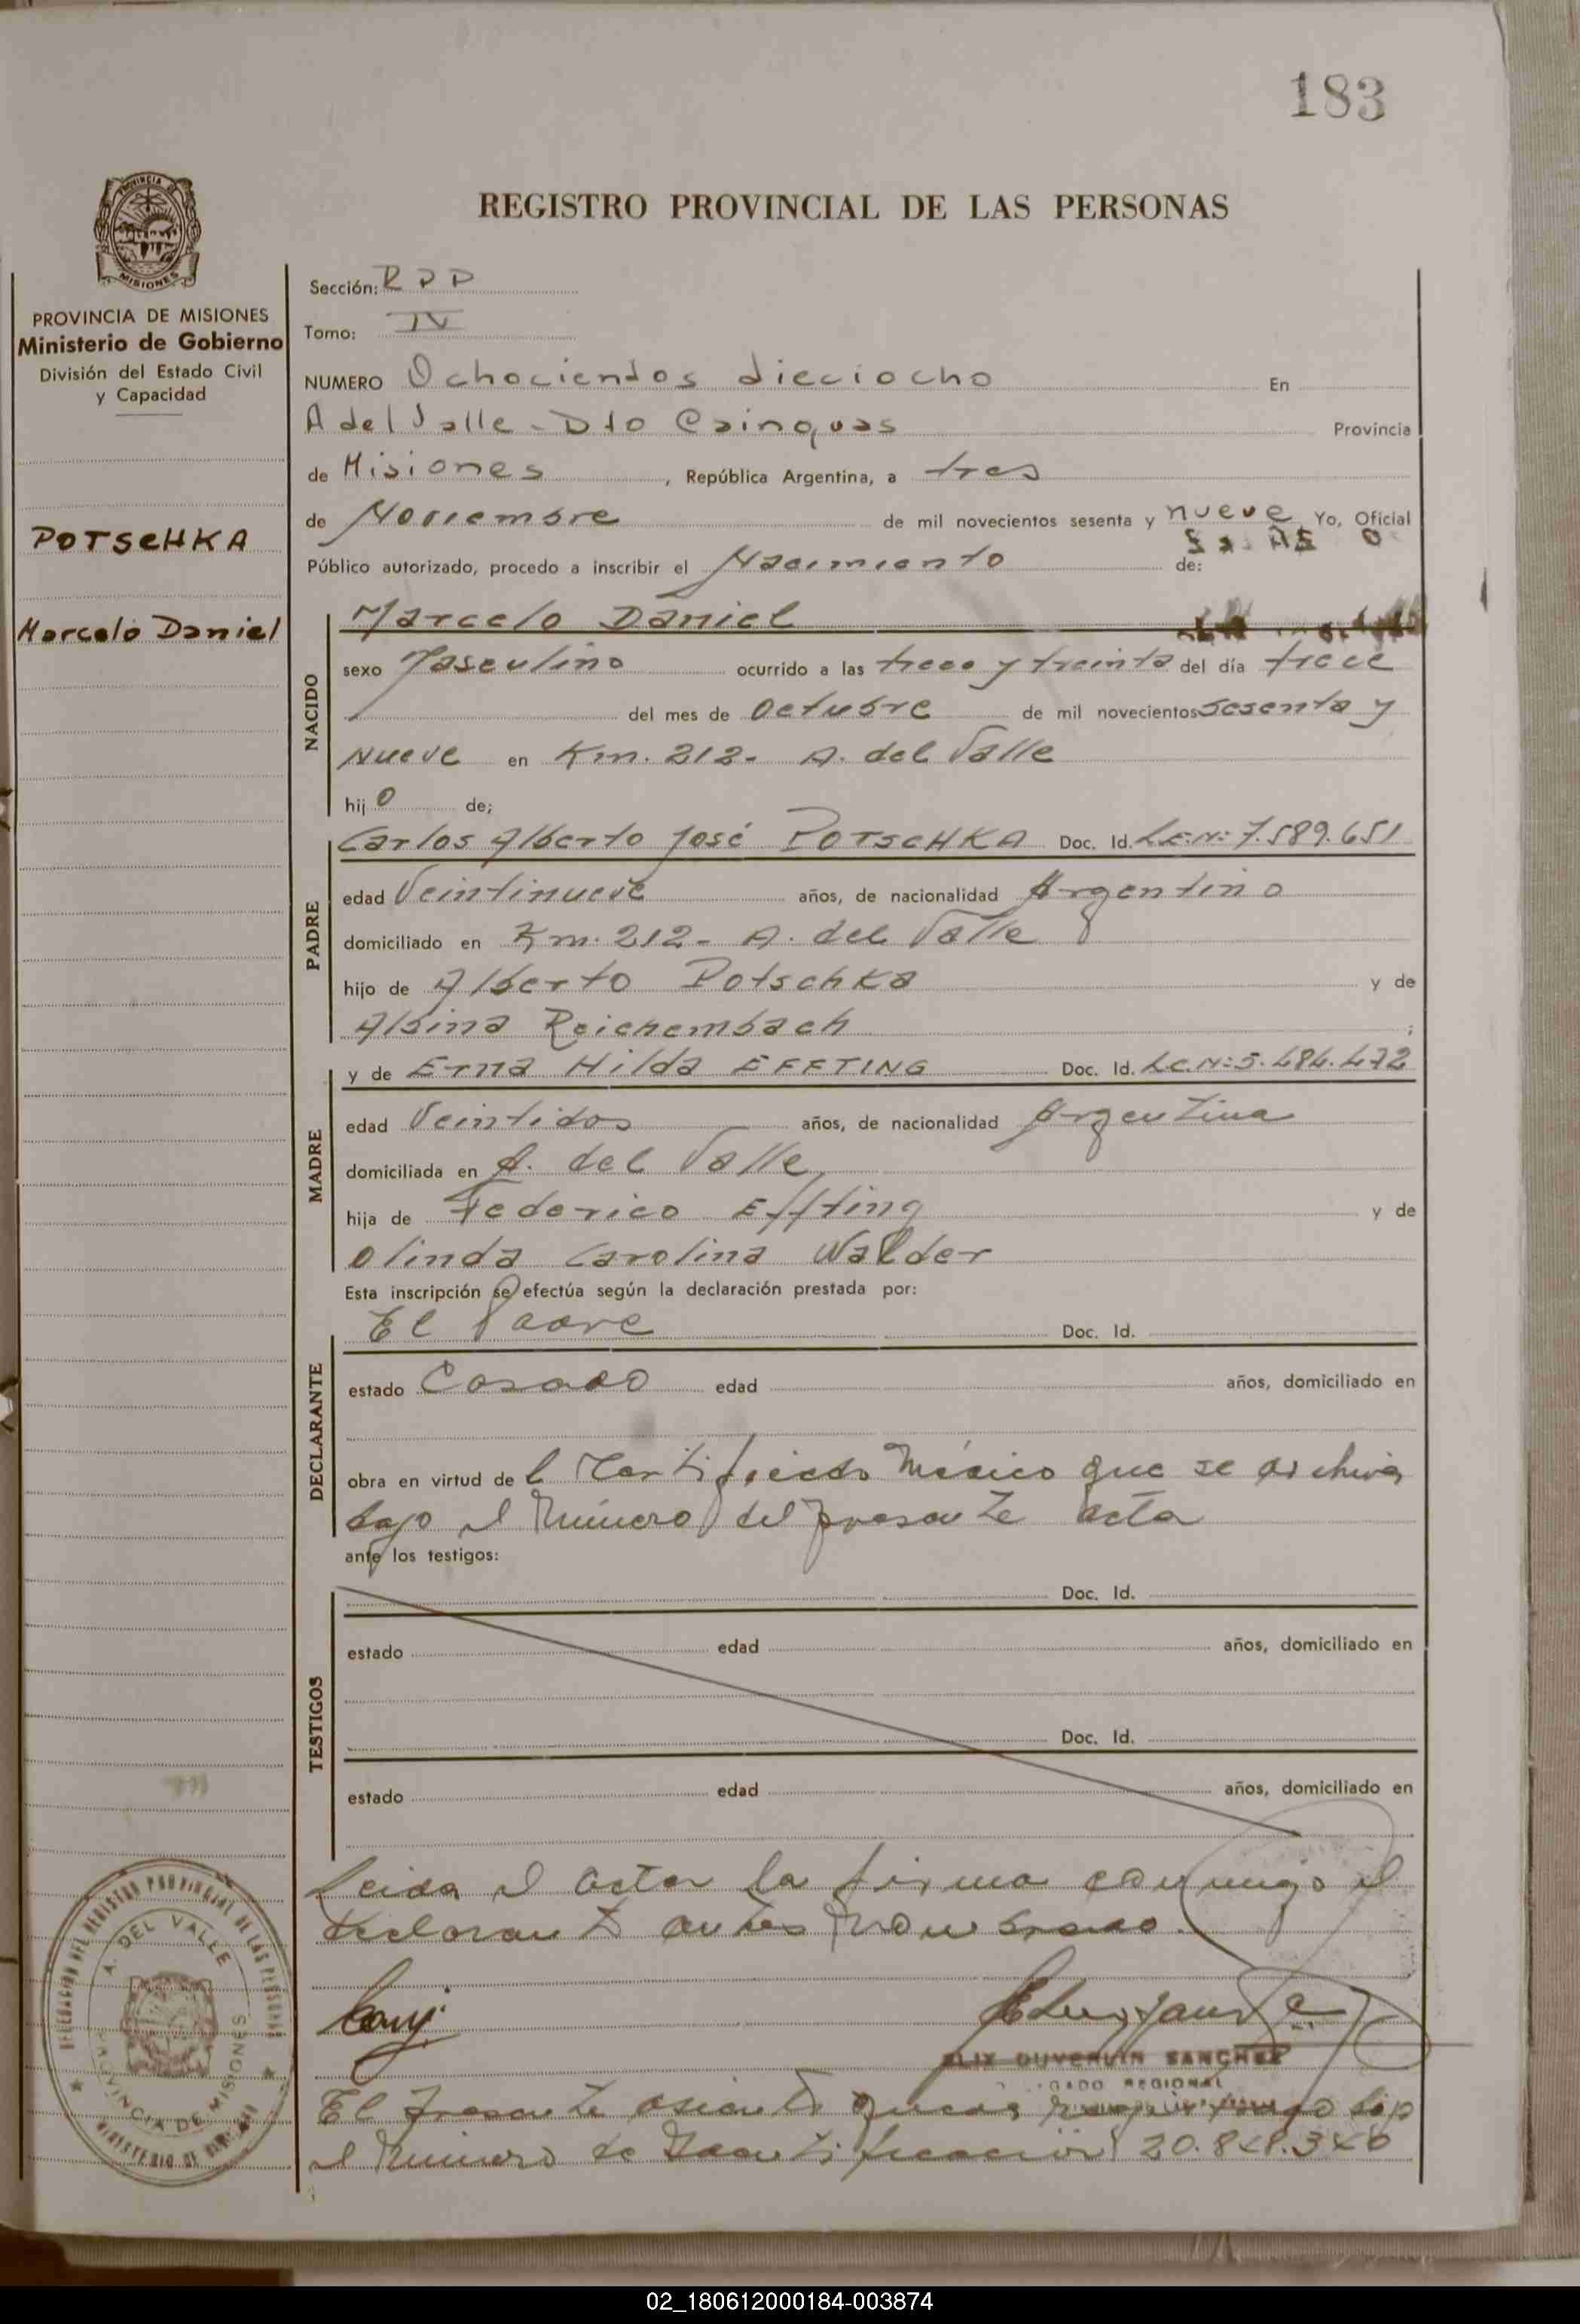 183
REGISTRO PROVINCIAL DE LAS PERSONAS
PROVINCIA DE MISIONES
Ministerio de Gobierno
División del Estado Civil
y Capacidad
POTSCHKA
Marcelo Daniel
Sección: RPP
Tomo: IV
NUMERO Ochocientos dieciocho En
A del Valle - Dto Cainguas Provincia
de Misiones, República Argentina, a tres
de Noviembre de mil novecientos sesenta y nueve Yo, Oficial
Público autorizado, procedo a inscribir el Nacimiento de:
NACIDO
Marcelo Daniel
sexo Masculino ocurrido a las trece y treinta del día trece
del mes de Octubre de mil novecientos sesenta y
Nueve en Km. 212- A. del Valle
hijo de;
PADRE
Carlos Alberto José POTSCHKA Doc. Id. L.E.N: 7.589.651
edad Veintinueve años, de nacionalidad Argentino
domiciliado en Km. 212- A. del Valle
hijo de Alberto Potschka y de
Albina Reichembach;
MADRE
y de Erna Hilda EFFTING Doc. Id. L.C.N: 5.484.472
edad Veintidos años, de nacionalidad Argentina
domiciliada en A. del Valle
hija de Federico Effting y de
Olinda Carolina Walder
Esta inscripción se efectúa según la declaración prestada por:
DECLARANTE
El Padre Doc. Id.
estado Casado edad años, domiciliado en
obra en virtud del Certificado Médico que se archiva
bajo el Número del presente acta
ante los testigos:
TESTIGOS
Doc. Id.
estado edad años, domiciliado en
Doc. Id.
estado edad años, domiciliado en
Leida el acta la firma conmigo el
declarante antes nombrado.
SANCHEZ
REGIONAL
El presente asiento queda bajo
el Número de Identificación
DELEGACION DEL REGISTRO PROVINCIAL DE LAS PERSONAS
A. DEL VALLE
PROVINCIA DE MISIONES
02_180612000184-003874